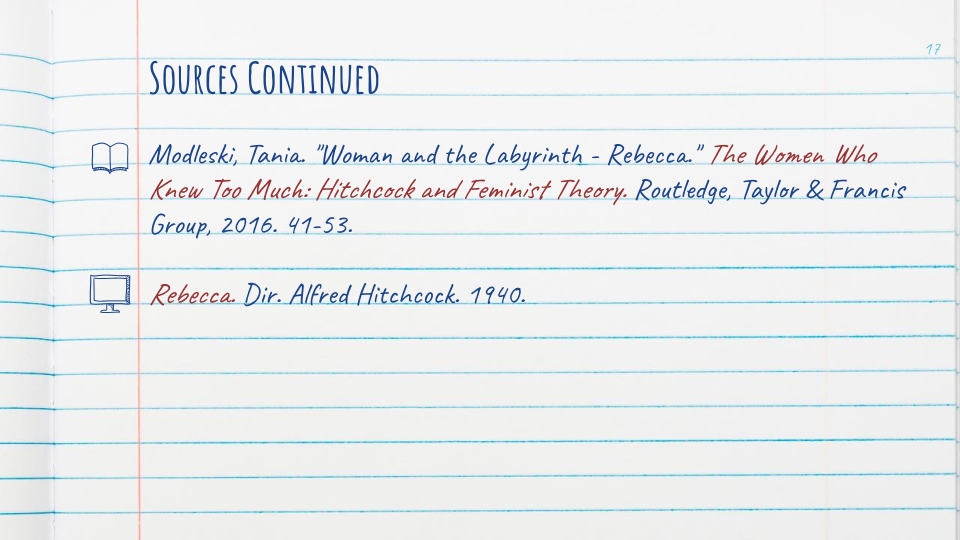 17
Sources Continued
Modleski, Tania. "Woman and the Labyrinth - Rebecca." The Women Who
Knew Too Much: Hitchcock and Feminist Theory. Routledge, Taylor & Francis
Group, 2016. 41-53.
Rebecca. Dir. Alfred Hitchcock. 1940.